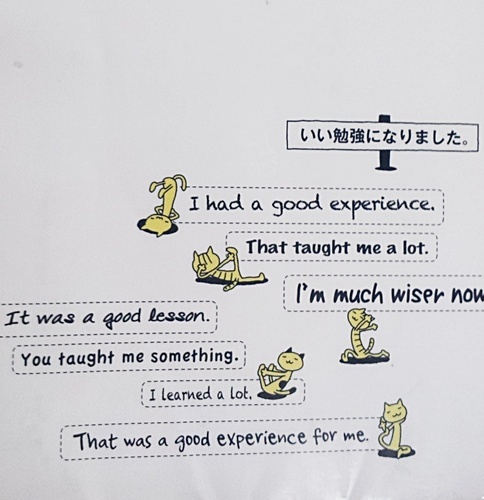 いい勉強になりました。
I had a good experience.
That taught me a lot.
I'm much wiser now
It was a good lesson.
You taught me something.
I learned a lot.
That was a good experience for me.